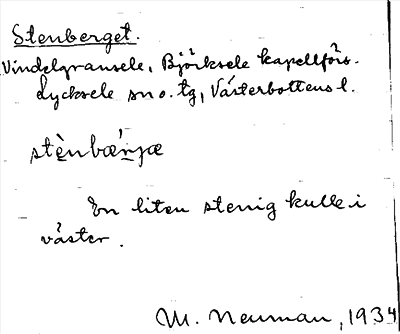 Stenberget.
Vindelgransele, Björksele kapellförs.
Lycksele sn o. tg, Västerbottens l.
stènbǽrjæ
En liten stenig kulle i
väster.
M. Neuman, 1934